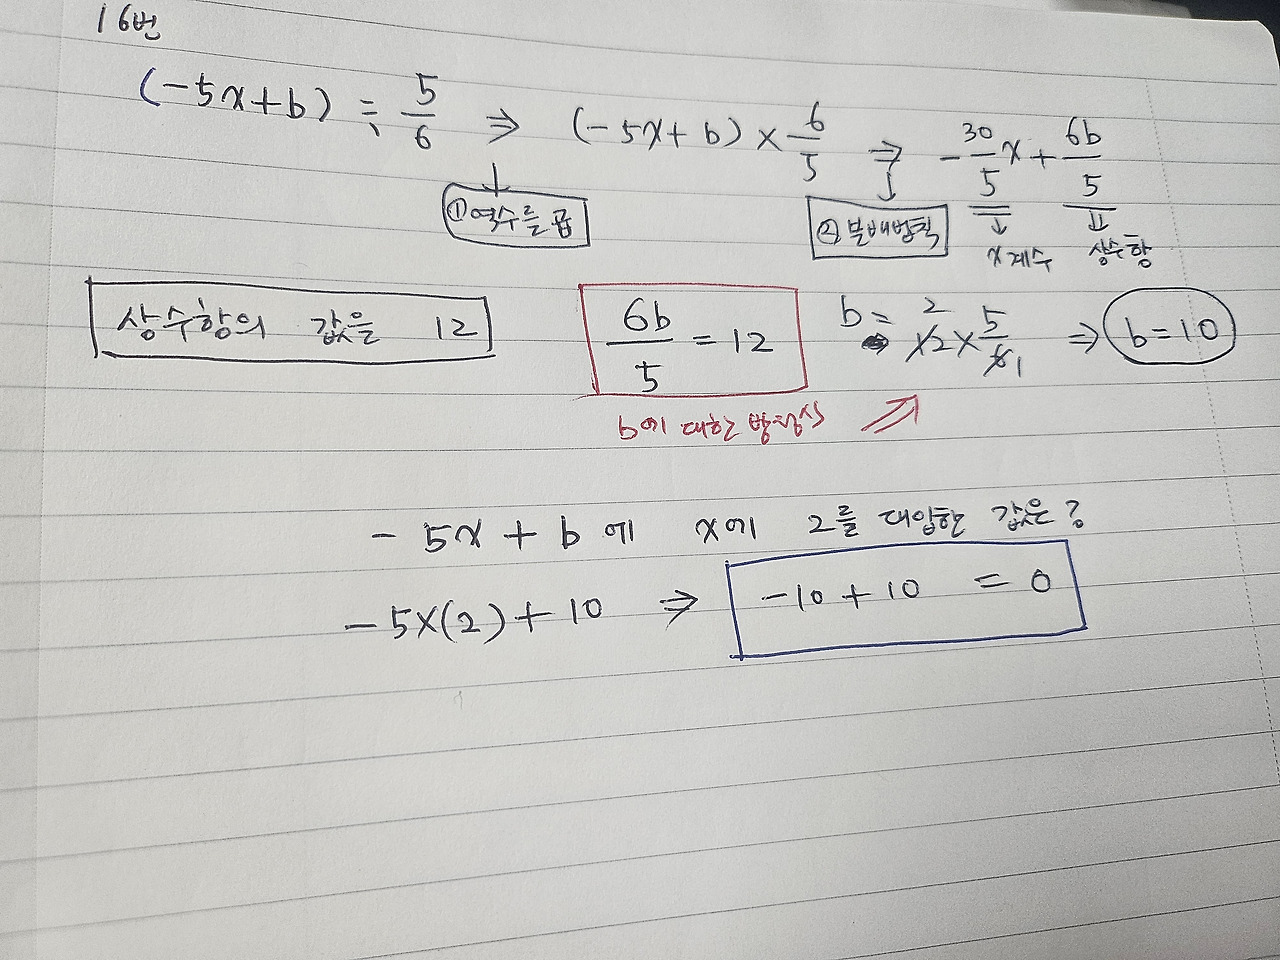 16번
(-5x+b) ÷ 5/6 ⇒ (-5x+b) × 6/5 ⇒ -30/5 x + 6b/5
①역수를 곱 ② 분배법칙 x계수 상수항
상수항의 값을 12 6b/5 = 12 b = 12 × 5/6 2 1 ⇒ b=10
b에 대한 방정식
-5x + b 에 x에 2를 대입한 값은?
-5×(2)+10 ⇒ -10+10 = 0